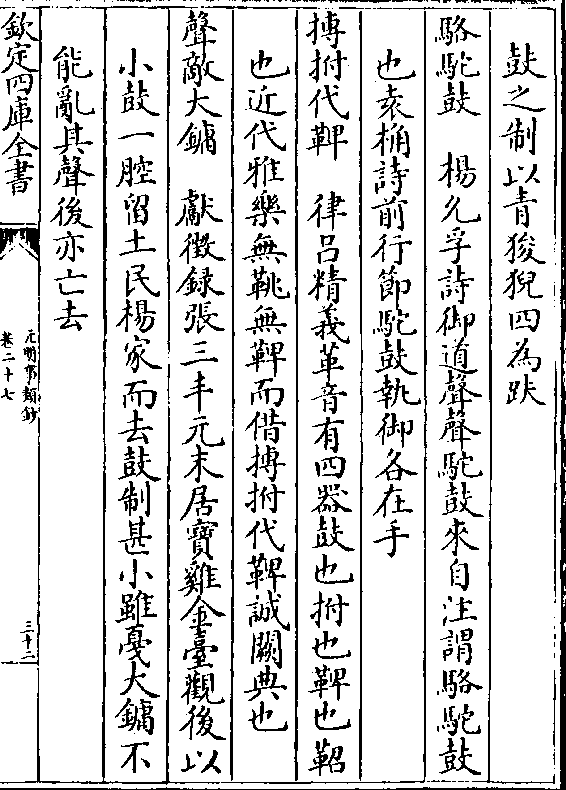 鼓之制以青狻猊四為趺
駱駝鼓　楊允孚詩御道聲聲駝鼓來自注謂駱駝鼓
也袁桷詩前行節駝鼓執御各在手
搏拊代鞞　律吕精義革音有四器鼓也拊也鞞也鞀
也近代雅樂無鞉無鞞而借搏拊代鞞誠闕典也
聲敵大鏞　獻徴録張三丰元末居寶雞金臺觀後以
小鼓一腔留土民楊家而去鼓制甚小雖戞大鏞不
能亂其聲後亦亡去
欽定四庫全書
元明事類鈔
卷二十七
三十二